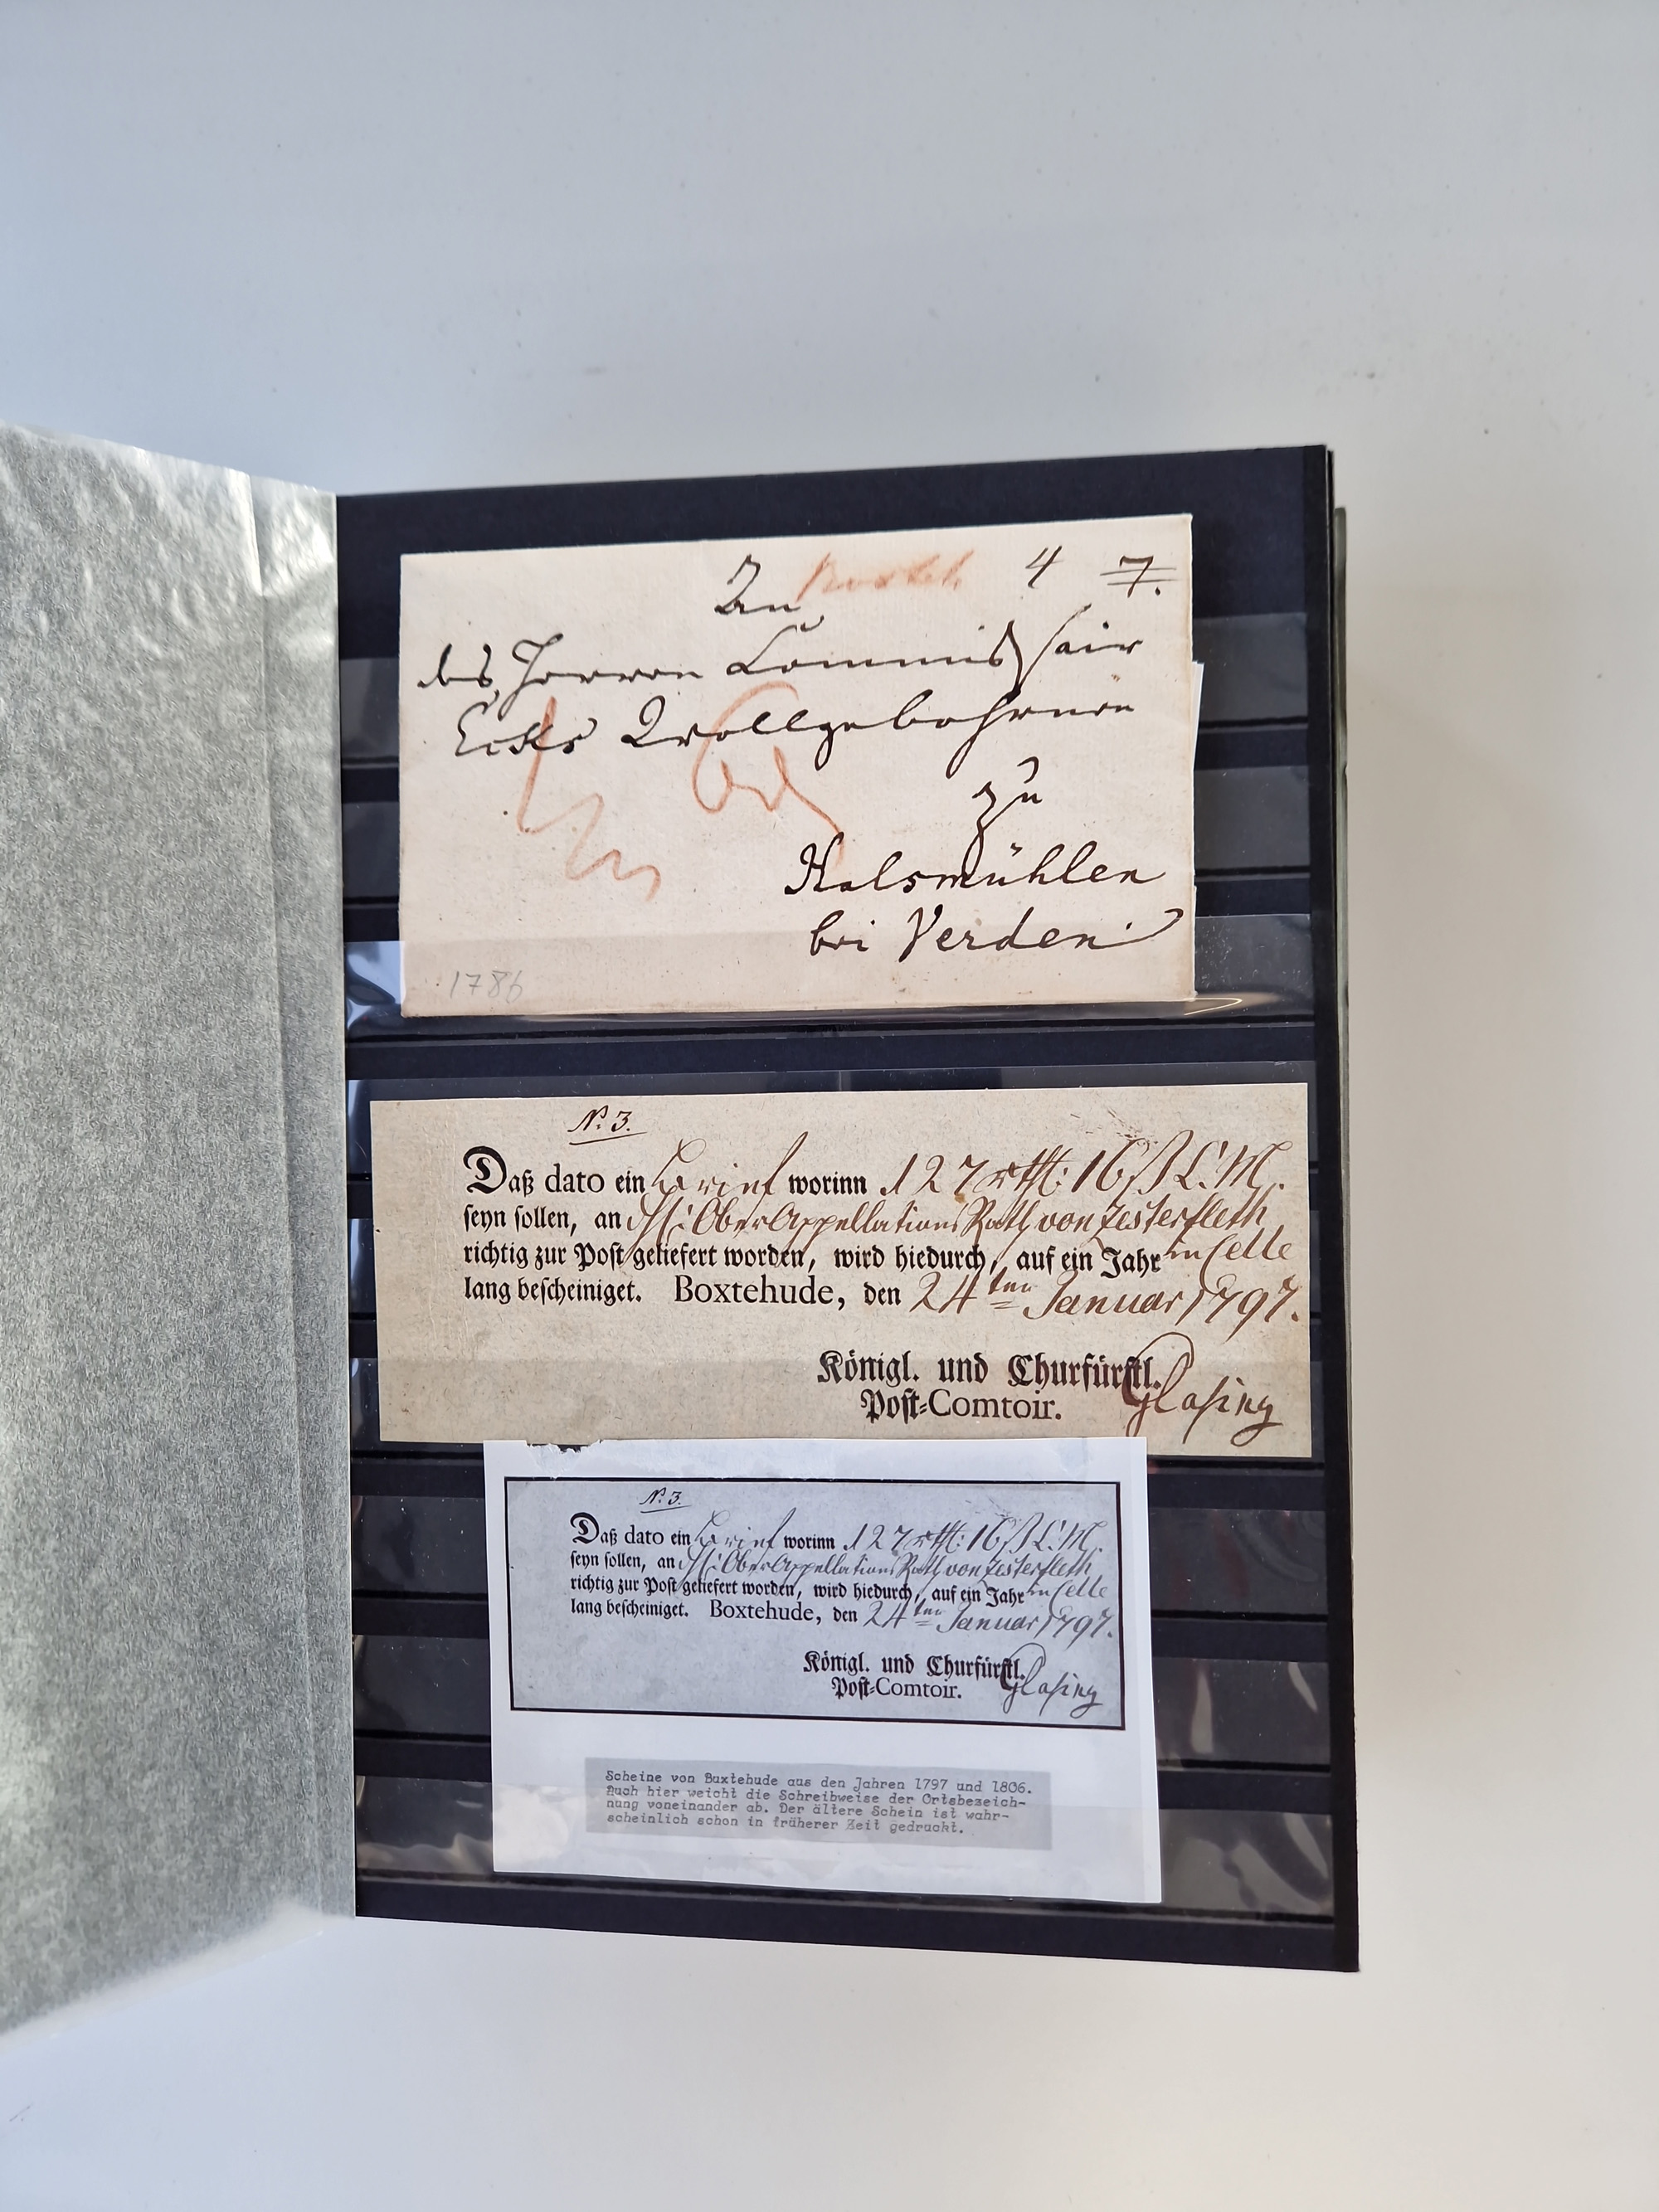 An 4 7.
des Herren Commissair
Ecks Wollgebohrnen
zu
Halsmühlen
bei Verden
1786
N: 3.
Daß dato ein Brief worinn 127 rthl: 16 ß C. M.
seyn sollen, an H: Ober Appellations Rath von Zesterfleth
richtig zur Post geliefert worden, wird hiedurch, auf ein Jahr in Celle
lang bescheiniget. Boxtehude, den 24ten Januar 1797.
Königl. und Churfürstl.
Post-Comtoir. Glasing
N: 3.
Daß dato ein Brief worinn 127 rthl: 16 ß C. M.
seyn sollen, an H: Ober Appellations Rath von Zesterfleth
richtig zur Post geliefert worden, wird hiedurch, auf ein Jahr in Celle
lang bescheiniget. Boxtehude, den 24ten Januar 1797.
Königl. und Churfürstl.
Post-Comtoir. Glasing
Scheine von Buxtehude aus den Jahren 1797 und 1806.
Auch hier weicht die Schreibweise der Ortsbezeich-
nung voneinander ab. Der ältere Schein ist wahr-
scheinlich schon in früherer Zeit gedruckt.